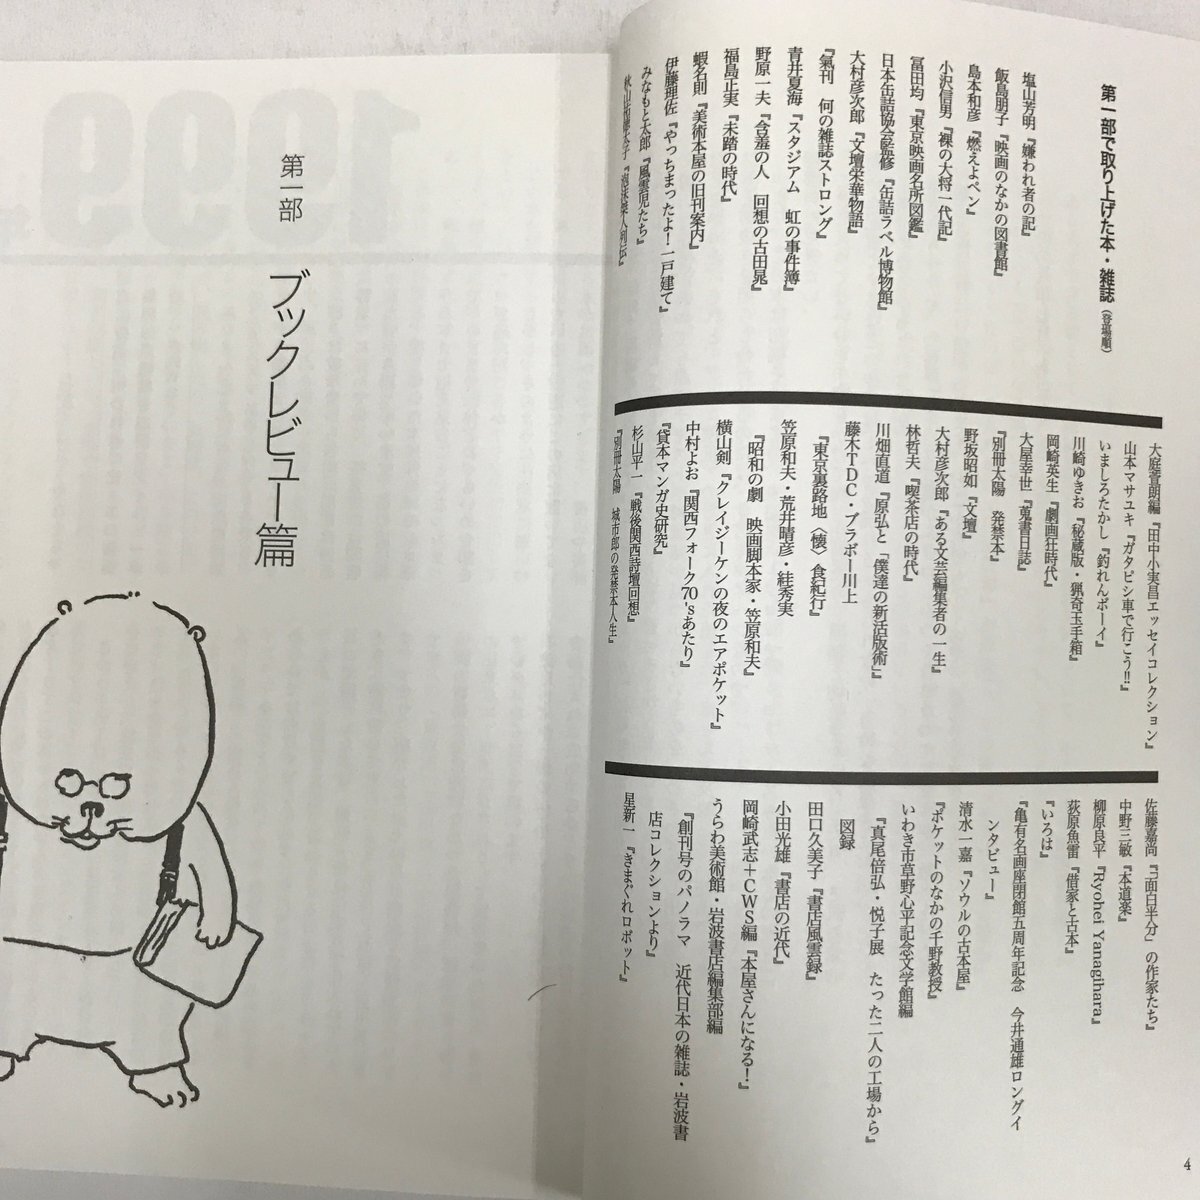 第一部で取り上げた本・雑誌（登場順）
塩山芳明『嫌われ者の記』
飯島朋子『映画のなかの図書館』
島本和彦『燃えよペン』
小沢信男『裸の大将一代記』
冨田均『東京映画名所図鑑』
日本缶詰協会監修『缶詰ラベル博物館』
大村彦次郎『文壇栄華物語』
『氣刊　何の雑誌ストロング』
青井夏海『スタジアム　虹の事件簿』
野原一夫『含羞の人　回想の古田晁』
福島正実『未踏の時代』
蝦名則『美術本屋の旧刊案内』
伊藤理佐『やっちまったよ！一戸建て』
みなもと太郎『風雲児たち』
大庭萱朗編『田中小実昌エッセイコレクション』
山本マサユキ『ガタピシ車で行こう!!』
いましろたかし『釣れんボーイ』
川崎ゆきお『秘蔵版・猟奇玉手箱』
岡崎英生『劇画狂時代』
大屋幸世『蒐書日誌』
『別冊太陽　発禁本』
野坂昭如『文壇』
大村彦次郎『ある文芸編集者の一生』
林哲夫『喫茶店の時代』
川畑直道『原弘と「僕達の新活版術」』
藤木ＴＤＣ・ブラボー川上
『東京裏路地〈懐〉食紀行』
笠原和夫・荒井晴彦・絓秀実
『昭和の劇　映画脚本家・笠原和夫』
横山剣『クレイジーケンの夜のエアポケット』
中村よお『関西フォーク70'sあたり』
『貸本マンガ史研究』
杉山平一『戦後関西詩壇回想』
『別冊太陽　城市郎の発禁本人生』
佐藤嘉尚『「面白半分」の作家たち』
中野三敏『本道楽』
柳原良平『Ryohei Yanagihara』
荻原魚雷『借家と古本』
『いろは』
『亀有名画座閉館五周年記念　今井通雄ロングイ
ンタビュー』
清水一嘉『ソウルの古本屋』
『ポケットのなかの千野教授』
いわき市草野心平記念文学館編
『真尾倍弘・悦子展　たった二人の工場から』
図録
田口久美子『書店風雲録』
小田光雄『書店の近代』
岡崎武志＋ＣＷＳ編『本屋さんになる！』
うらわ美術館・岩波書店編集部編
『創刊号のパノラマ　近代日本の雑誌・岩波書
店コレクションより』
星新一『きまぐれロボット』
4
第一部　ブックレビュー篇